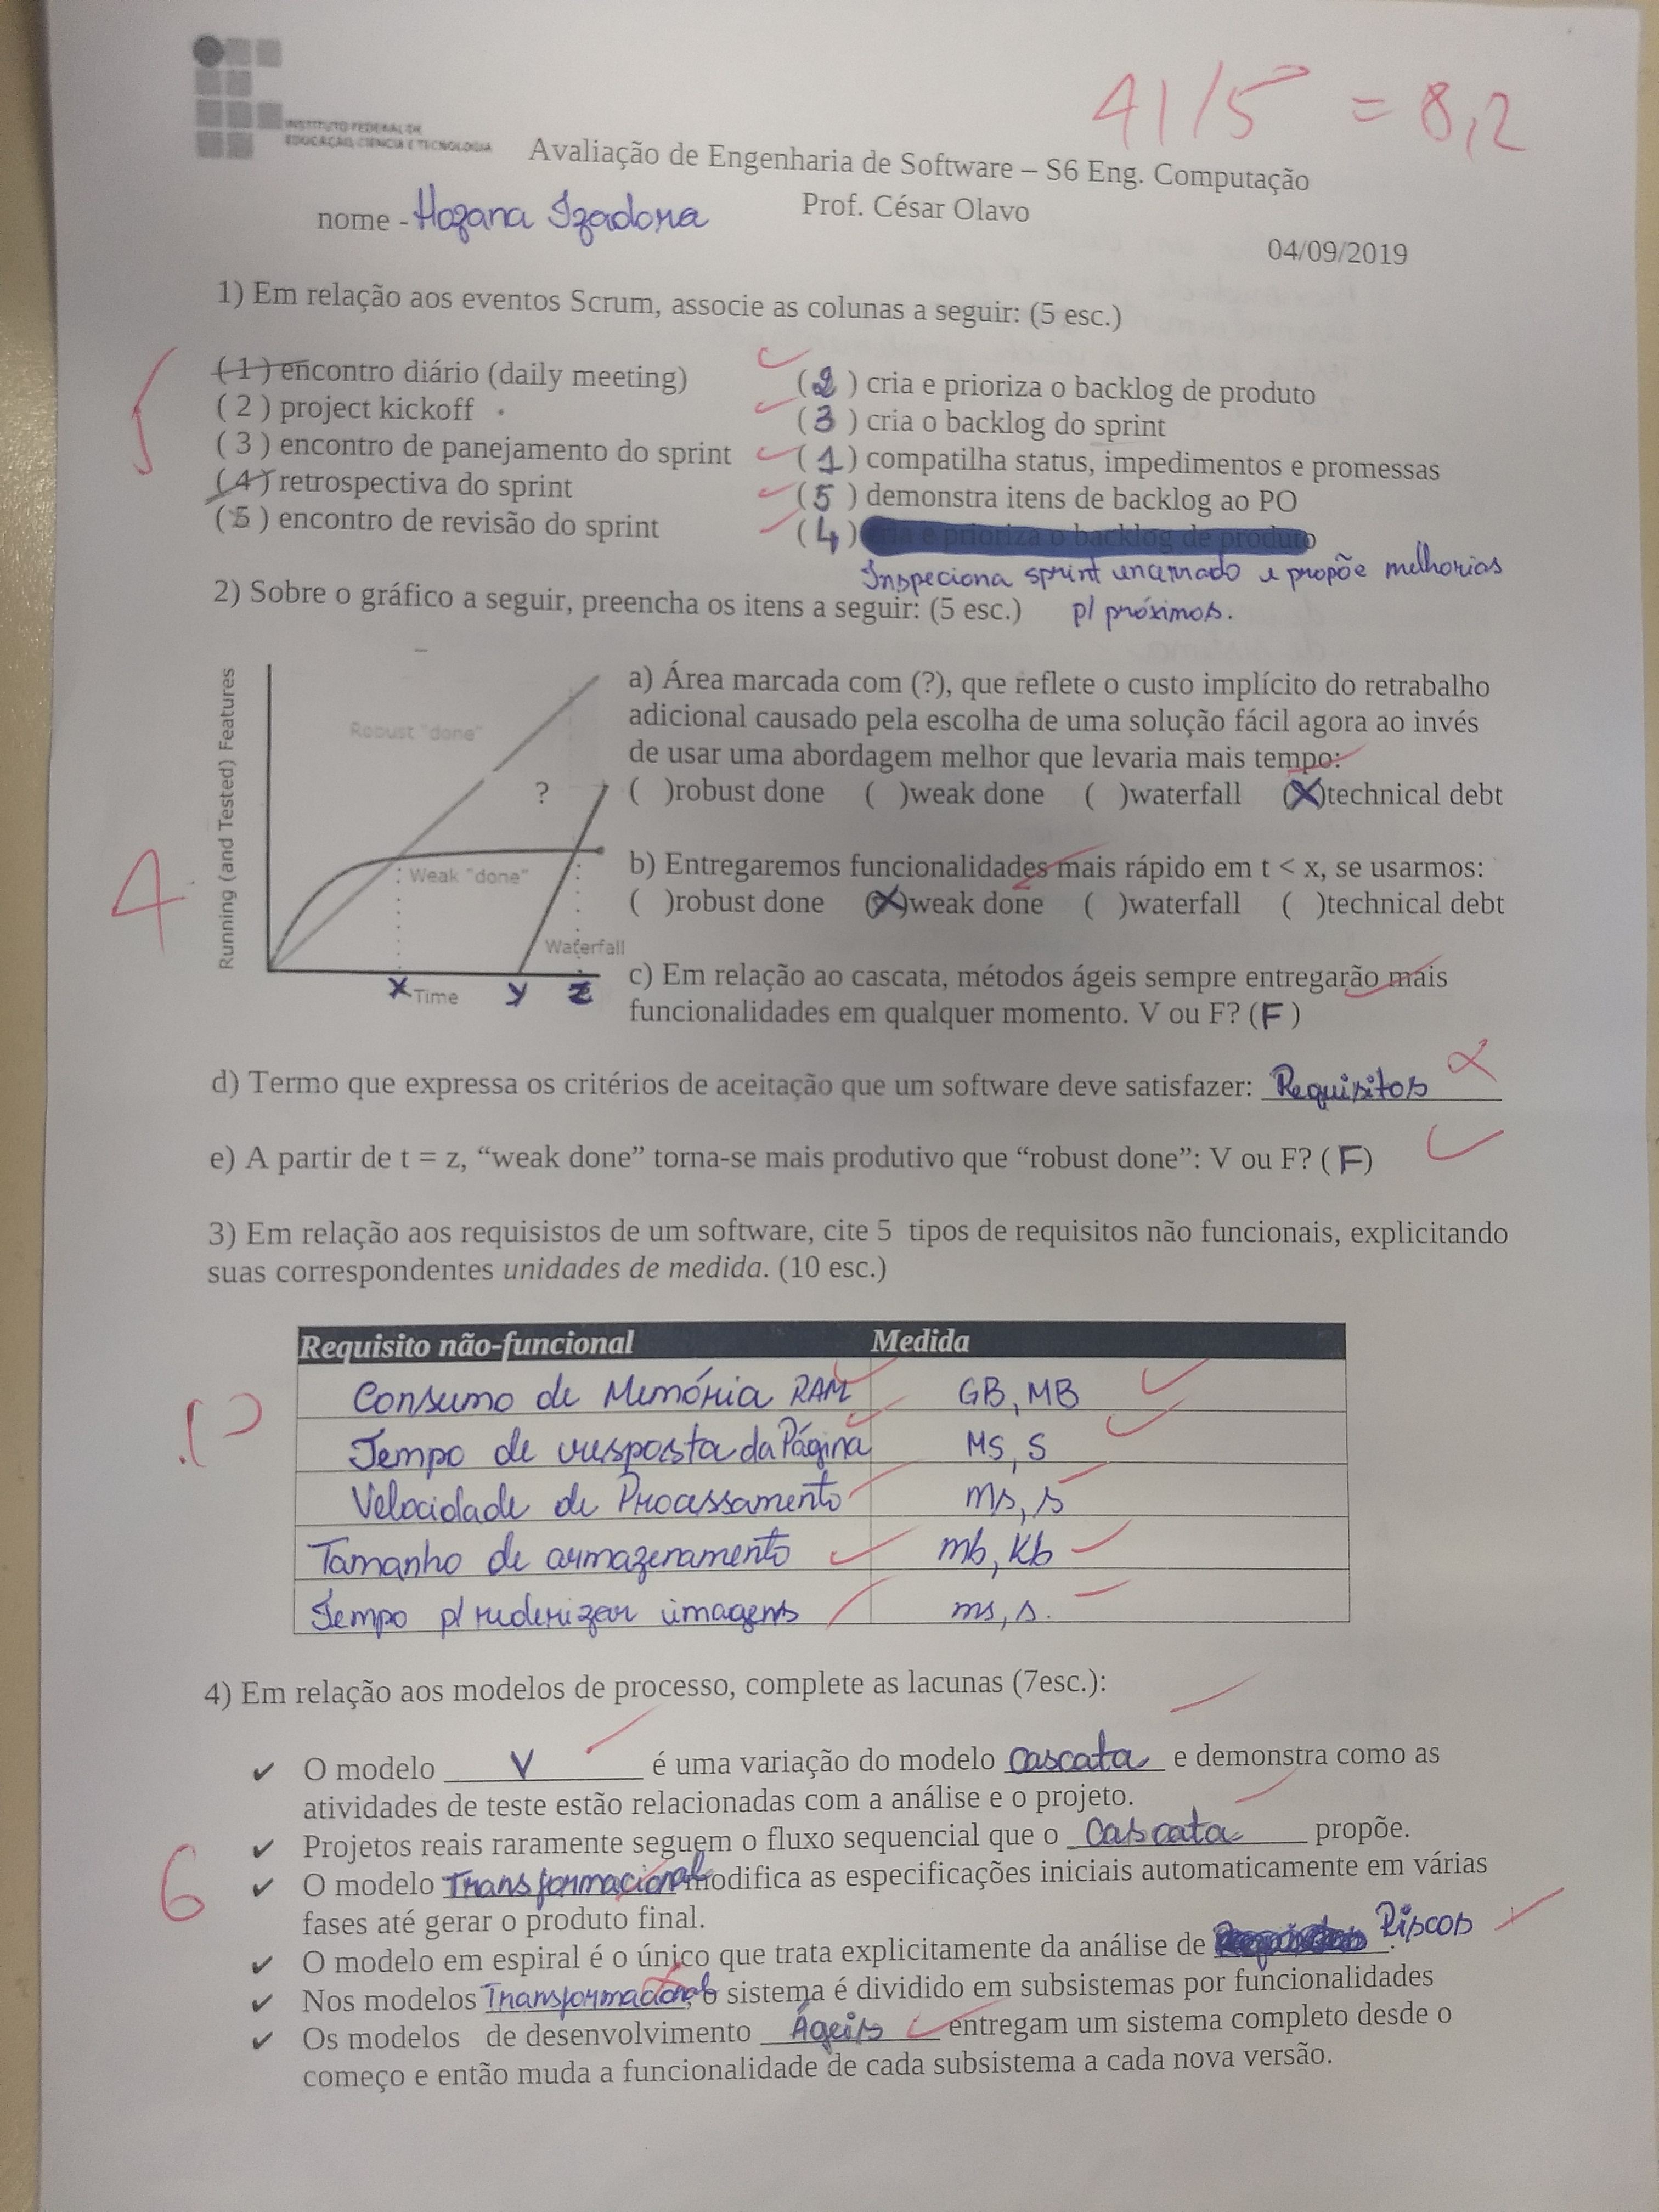 41/5 = 8,2
INSTITUTO FEDERAL DE
EDUCAÇÃO, CIÊNCIA E TECNOLOGIA
Avaliação de Engenharia de Software – S6 Eng. Computação
Prof. César Olavo
nome - Hozana Izadora
04/09/2019
1) Em relação aos eventos Scrum, associe as colunas a seguir: (5 esc.)
5
( 1 ) encontro diário (daily meeting)
( 2 ) project kickoff
( 3 ) encontro de panejamento do sprint
( 4 ) retrospectiva do sprint
( 5 ) encontro de revisão do sprint
( 2 ) cria e prioriza o backlog de produto
( 3 ) cria o backlog do sprint
( 1 ) compatilha status, impedimentos e promessas
( 5 ) demonstra itens de backlog ao PO
( 4 ) cria e prioriza o backlog de produto
Inspeciona sprint encerrado e propõe melhorias
p/ próximos.
2) Sobre o gráfico a seguir, preencha os itens a seguir: (5 esc.)
4
Running (and Tested) Features
Robust "done"
?
Weak "done"
Waterfall
X Time y z
a) Área marcada com (?), que reflete o custo implícito do retrabalho
adicional causado pela escolha de uma solução fácil agora ao invés
de usar uma abordagem melhor que levaria mais tempo:
( )robust done ( )weak done ( )waterfall (X)technical debt
b) Entregaremos funcionalidades mais rápido em t < x, se usarmos:
( )robust done (X)weak done ( )waterfall ( )technical debt
c) Em relação ao cascata, métodos ágeis sempre entregarão mais
funcionalidades em qualquer momento. V ou F? (F )
d) Termo que expressa os critérios de aceitação que um software deve satisfazer: Requisitos
e) A partir de t = z, “weak done” torna-se mais produtivo que “robust done”: V ou F? ( F)
3) Em relação aos requisistos de um software, cite 5 tipos de requisitos não funcionais, explicitando
suas correspondentes unidades de medida. (10 esc.)
10
Requisito não-funcional Medida
Consumo de Memória RAM GB, MB
Tempo de resposta da Página MS, S
Velocidade de Processamento ms, s
Tamanho de armazenamento mb, Kb
Tempo p/ renderizar imagens ms, s.
4) Em relação aos modelos de processo, complete as lacunas (7esc.):
6
✔ O modelo V é uma variação do modelo Cascata e demonstra como as
atividades de teste estão relacionadas com a análise e o projeto.
✔ Projetos reais raramente seguem o fluxo sequencial que o Cascata propõe.
✔ O modelo Transformacional modifica as especificações iniciais automaticamente em várias
fases até gerar o produto final.
✔ O modelo em espiral é o único que trata explicitamente da análise de Riscos.
✔ Nos modelos Transformacional, o sistema é dividido em subsistemas por funcionalidades
✔ Os modelos de desenvolvimento Ágeis entregam um sistema completo desde o
começo e então muda a funcionalidade de cada subsistema a cada nova versão.